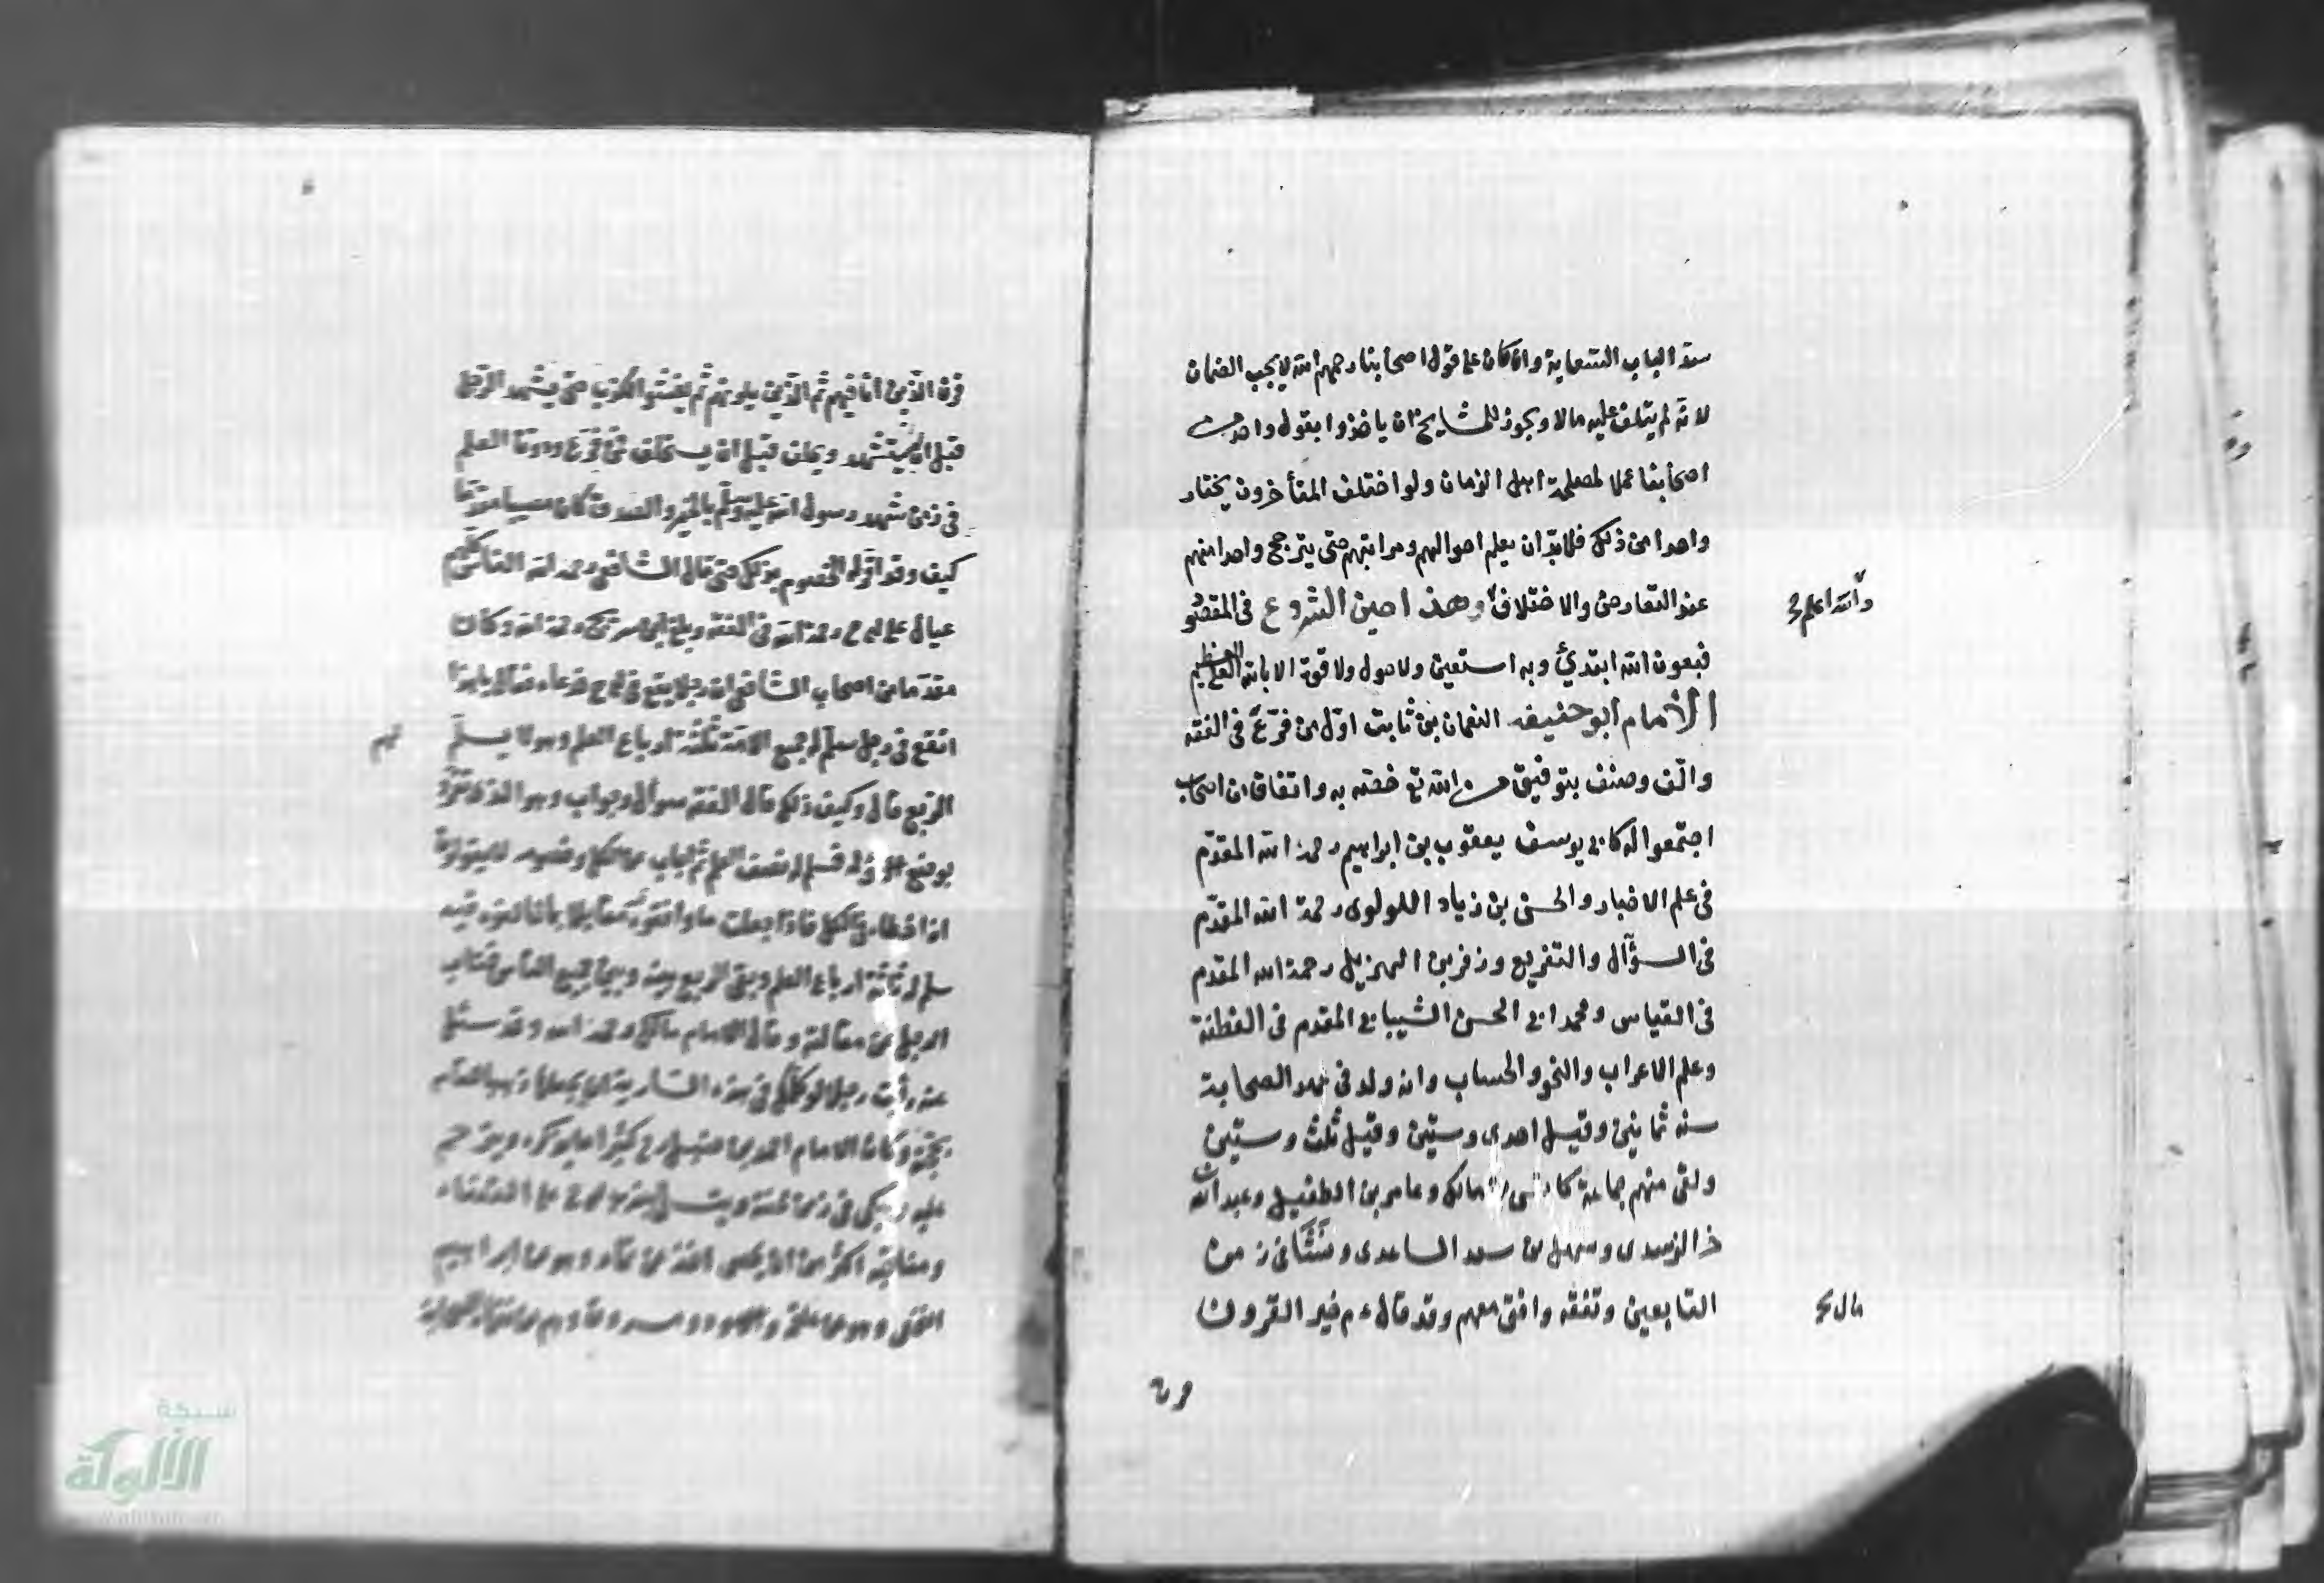 سد الباب السعاية وان كان على قول اصحابنا رحمهم الله لا يجب الضمان
لانه لم يتلف عليه مالا ويجوز للمشايخ ان ياخذوا بقول واحد من
اصحابنا عملا لمصلحة اهل الزمان ولو اختلف المتأخرون يختار
واحدا من ذلك فلا بد ان يعلم احوالهم ومراتبهم حتى يترجح واحد منهم
عند التعارض والاختلاف وهذا حين الشروع فى المقصود
والله اعلم
فبعون الله ابتدئ وبه استعين ولا حول ولا قوة الا بالله العلي العظيم
الامام ابو حنيفه النعمان بن ثابت اول من فرّع فى الفقه
والّف وصنف بتوفيق من الله تع خصّه به واتفاق ان اصحاب
اجتمعوا له كابى يوسف يعقوب بن ابراهيم رحمه الله المقدّم
فى علم الاخبار والحسن بن زياد اللولوى رحمه الله المقدّم
فى السؤال والتفريع وزفر بن الهزيل رحمه الله المقدم
فى القياس ومحمد ابى الحسن الشيبانى المقدم فى الفطنة
وعلم الاعراب والنحو والحساب وانه ولد فى عهد الصحابة
سنه ثمانين وقيل احدى وستين وقيل ثلث وستين
ولقى منهم جماعة كانس بن مالك وعامر بن الطفيل وعبد الله
الزبيدى وسهل بن سعد الساعدى ونشأ فى زمن
التابعين وتفقه وافتى معهم وقد قال ءم خير القرون
قال
قرن
قرن الّذين انا فيهم ثم الّذين يلونهم ثم يفشو الكذب حتى يشهد الرجل
قبل ان يستشهد ويحلف قبل ان يستحلف فمن فرّع ودوّن العلم
فى زمن شهد رسول الله عليه وسلم بالخير والصدق كان مصيبا
كيف وقد اقرّ له الخصوم بذلك حتى قال الشافعى رحمه الله الناس كلهم
عيال على ابى ح رحمه الله فى الفقه وبلغ ابن سريج رحمه الله وكان
مقدما من اصحاب الشافعى ان رجلا يقع فى ابى ح فدعاه فقال يا هذا
اتقع فى رجل سلّم له جميع الامة ثلثة ارباع العلم وهو لا يسلّم
لهم
الربع قال وكيف ذلك قال الفقه سؤال وجواب وهو الذى تفرّد
بوضع السؤال فسلم له نصف العلم ثم اجاب عن الكل وخصومه لا يقولون
انه اخطاء فى الكل فاذا جعلت ما وافقوه مقابلا بما خالفوه فيه
سلم له ثلثة ارباع العلم وبقى الربع بينه وبين جميع الناس فتاب
الرجل عن مقالته وقال الامام مالك رحمه الله وقد سئل
عنه رأيت رجلا لو كلمك فى هذه السارية ان يجعلها ذهبا لقام
بحجته وكان الامام احمد بن حنبل رح كثيرا ما يذكره ويترحم
عليه ويبكى فى زمن محنته ويتسلى بضرب ابى ح على القضاء
ومناقبه اكثر من ان يحصى اخذ عن حمّاد وهو عن ابراهيم
النخعى وهو عن علقمة والاسود ومسروق